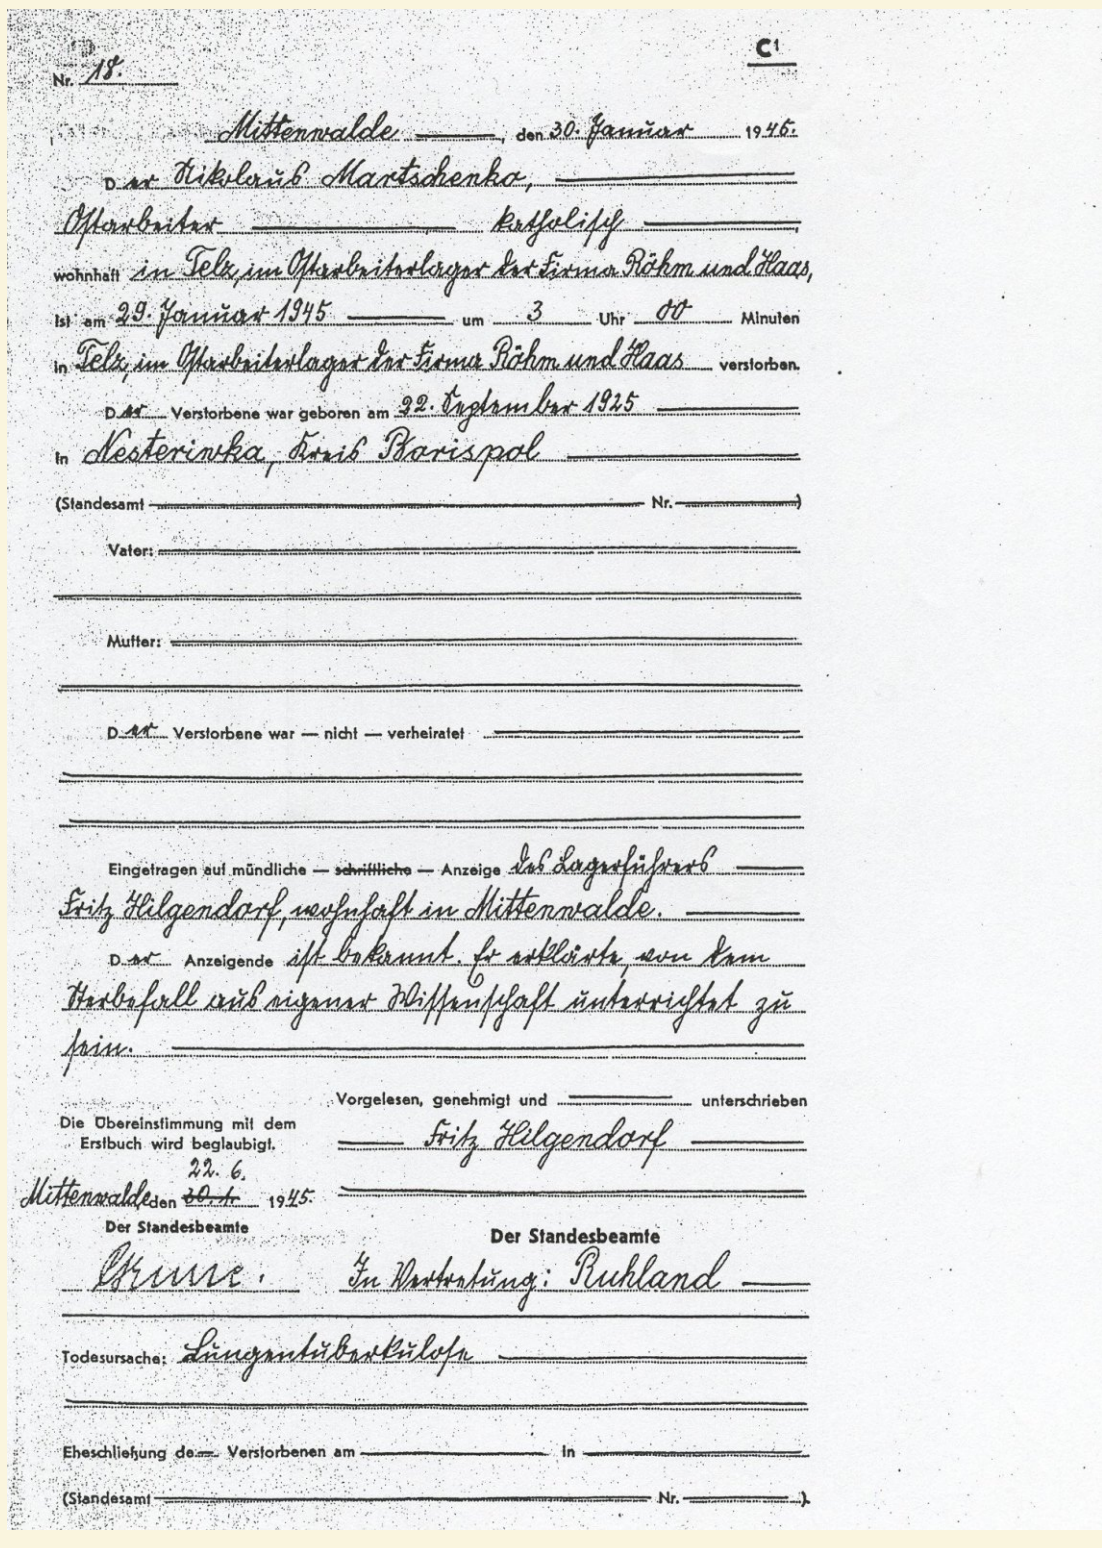 C1
Nr. 18.
Mittenwalde, den 30. Januar 1945.
Der Nikolaus Martschenko,
Ostarbeiter katholisch
wohnhaft in Telz, im Ostarbeiterlager der Firma Röhm und Haas,
ist am 29. Januar 1945 um 3 Uhr 00 Minuten
in Telz, im Ostarbeiterlager der Firma Röhm und Haas verstorben.
Der Verstorbene war geboren am 22. September 1925
in Nesteriwka, Kreis Borispol
(Standesamt Nr. )
Vater:
Mutter:
Der Verstorbene war — nicht — verheiratet
Eingetragen auf mündliche — schriftliche — Anzeige des Lagerführers
Fritz Hilgendorf, wohnhaft in Mittenwalde.
Der Anzeigende ist bekannt. Er erklärte, von dem
Sterbefall aus eigener Wissenschaft unterrichtet zu
sein.
Vorgelesen, genehmigt und unterschrieben
Fritz Hilgendorf
Die Übereinstimmung mit dem
Erstbuch wird beglaubigt.
22. 6.
Mittenwalde, den 30. 1. 1945.
Der Standesbeamte
Der Standesbeamte
In Vertretung: Ruhland
Todesursache: Lungentuberkulose
Eheschließung de Verstorbenen am in
(Standesamt Nr. ).